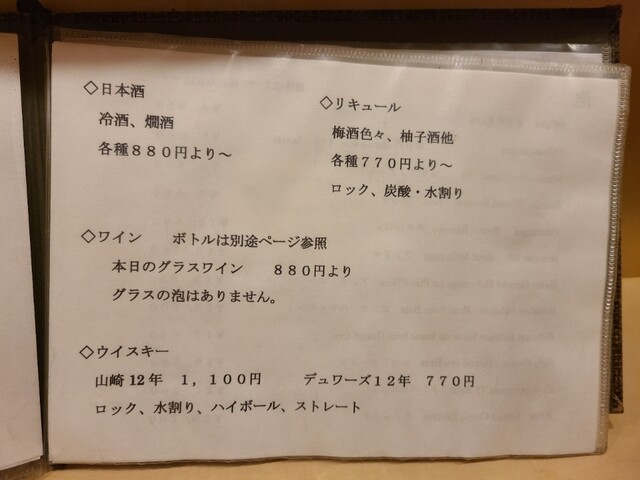 ◇日本酒
冷酒、燗酒
各種８８０円より～
◇リキュール
梅酒色々、柚子酒他
各種７７０円より～
ロック、炭酸・水割り
◇ワイン　　ボトルは別途ページ参照
本日のグラスワイン　　８８０円より
グラスの泡はありません。
◇ウイスキー
山崎 12 年　１，１００円　　デュワーズ１２年　７７０円
ロック、水割り、ハイボール、ストレート